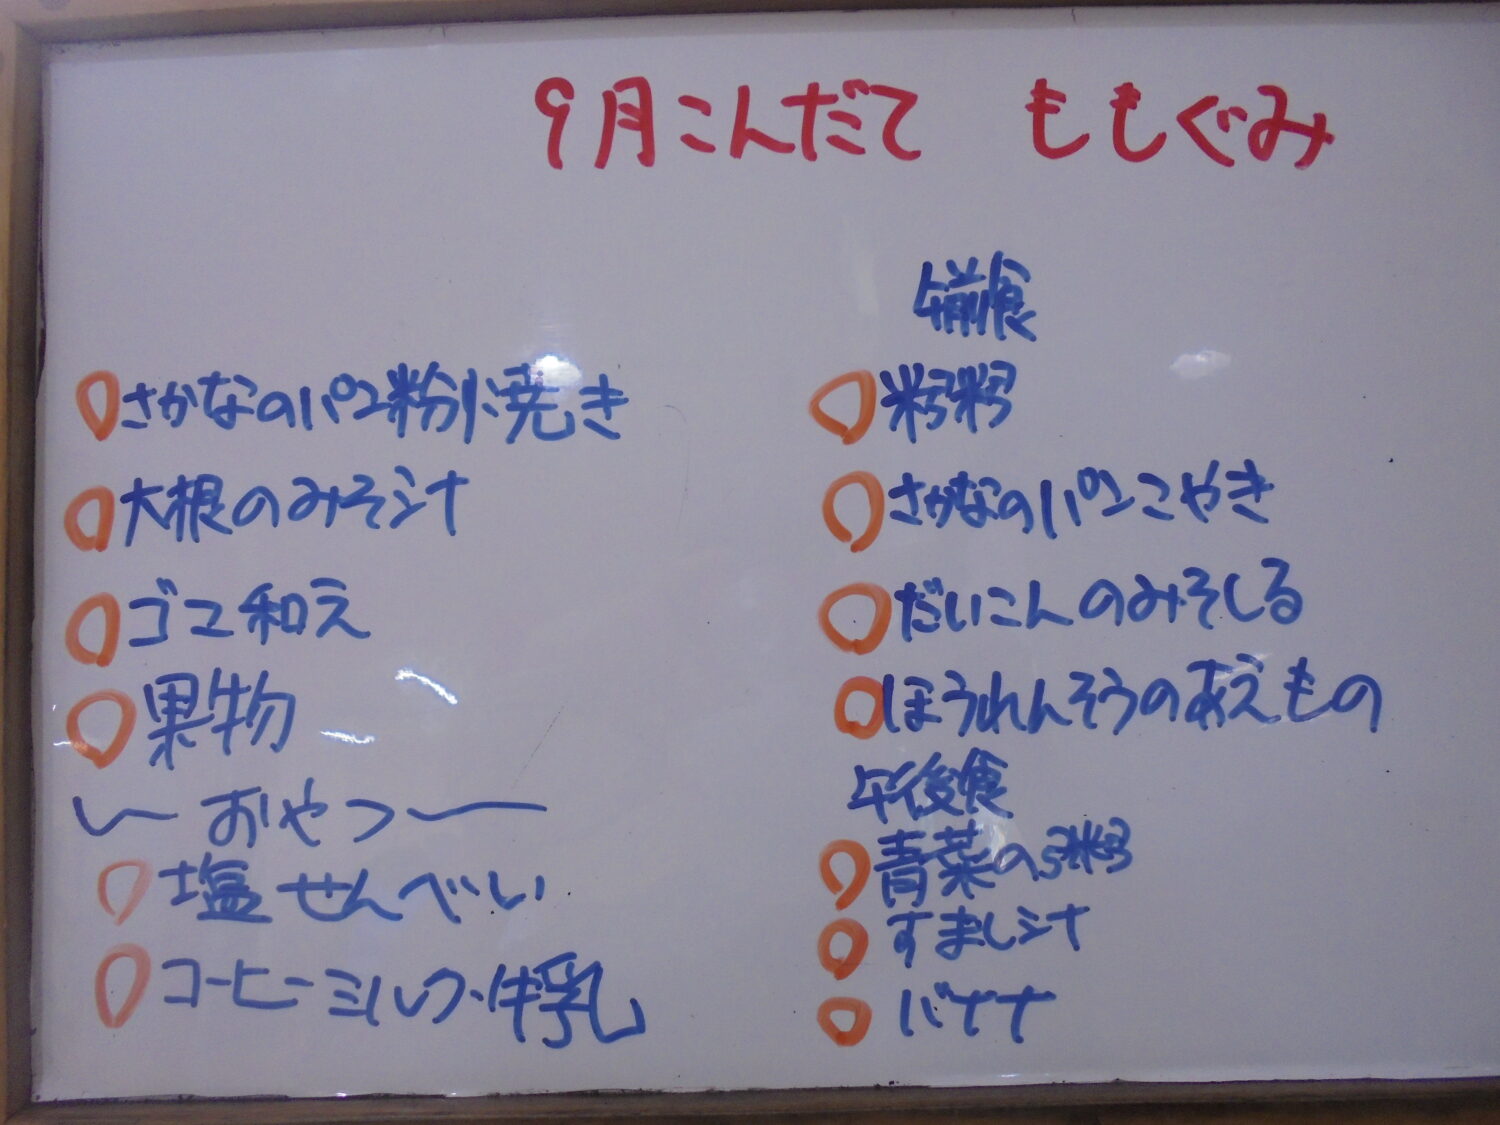 9月こんだて ももぐみ
さかなのパン粉焼き
大根のみそ汁
ゴマ和え
果物
おやつ
塩せんべい
コーヒーミルク・牛乳
午前食
さかなのパンこやき
だいこんのみそしる
ほうれんそうのあえもの
午後食
青菜の粥
すまし汁
バナナ